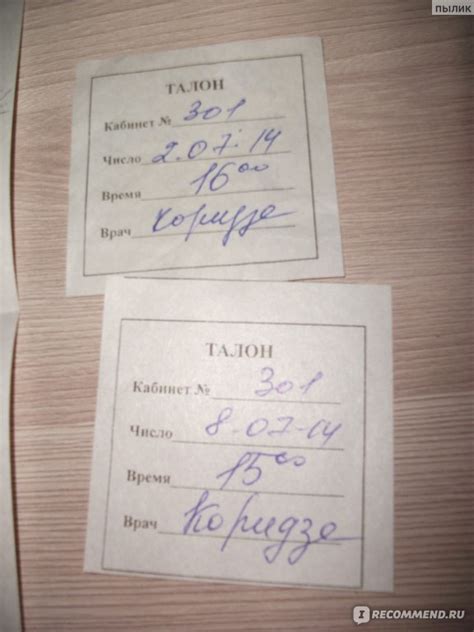 пылик
ТАЛОН
Кабинет № 301
Число 2.07.14
Время 16 00
Врач Коридзе
ТАЛОН
Кабинет № 301
Число 8-07-14
Время 15 00
Врач Коридзе
I RECOMMEND.RU